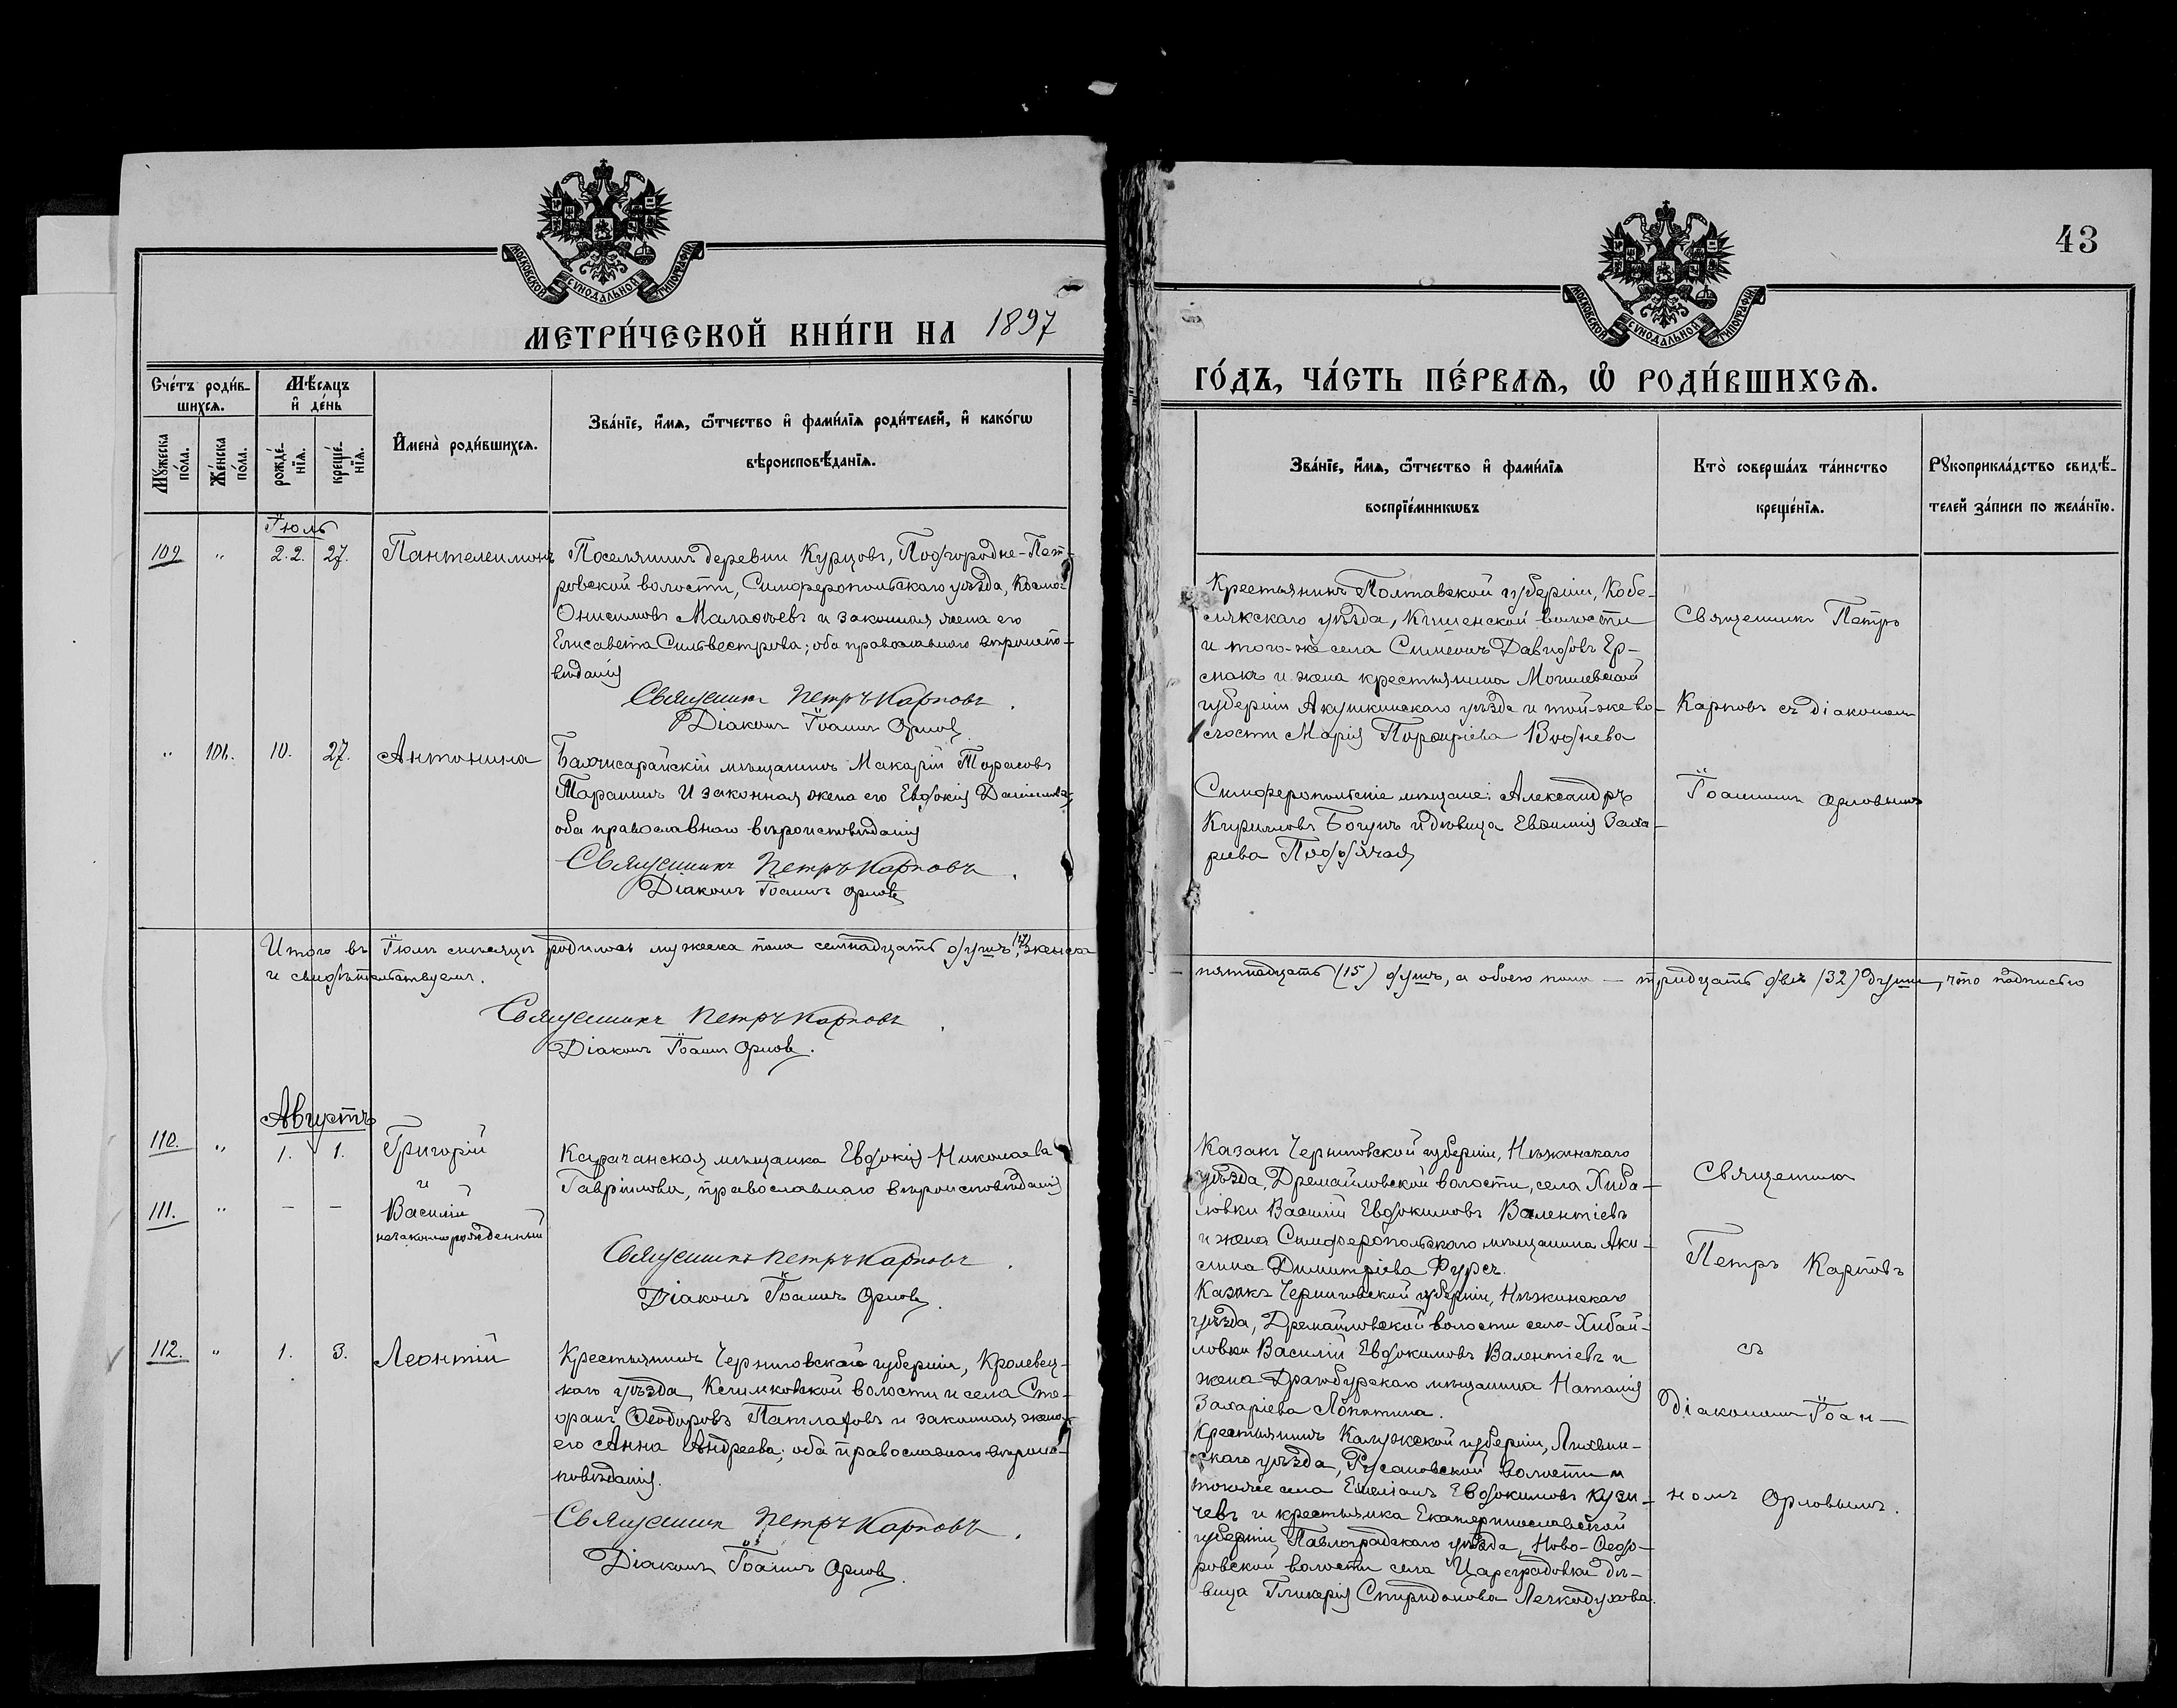 МОСКОВСКОЙ СѴНОДАЛЬНОЙ ТИПОГРАФІИ
МЕТРИ́ЧЕСКОЙ КНИ́ГИ НА 1897
Сче́тъ роди́в-
шихсѧ.
Мѣ́сѧцъ
и҆ де́нь
Мꙋ́жеска
по́ла.
Же́нска
по́ла.
рожде́-
нїѧ.
креще́-
нїѧ.
И҆мена̀ роди́вшихсѧ.
Зва́нїе, и҆́мѧ, ѻ҆́тчество и҆ фами́лїѧ роди́телей, и҆ како́гѡ
вѣроисповѣ́данїѧ.
Іюль
109 " 22. 27. Пантелеимонъ Поселянинъ деревни Курцовъ, Подгородне-Пет-
ровской волости, Симферопольскаго уѣзда, Косма
Онисимовъ Малафѣевъ и законная жена его
Елисавета Сильвестрова; оба православнаго вѣроиспо-
вѣданія
Священникъ Петръ Карповъ.
Діаконъ Іоаннъ Орловъ.
" 101. 10. 27. Антонина Бахчисарайскій мѣщанинъ Макарій Тарасовъ
Таранинъ и законная жена его Евдокія Даніилова,
оба православнаго вѣроисповѣданія
Священникъ Петръ Карповъ.
Діаконъ Іоаннъ Орловъ
Итого въ Іюлѣ мѣсяцѣ родилось мужеска пола семнадцать душъ (17), женска
и свидѣтельствуемъ.
Священникъ Петръ Карповъ.
Діаконъ Іоаннъ Орловъ.
Августъ
110. " 1. 1. Григорій
и
111. " – – Василій
незаконнорожденный
Карачанская мѣщанка Евдокія Николаева
Гаврилова, православнаго вѣроисповѣданія
Священникъ Петръ Карповъ.
Діаконъ Іоаннъ Орловъ.
112. " 1. 3. Леонтій Крестьянинъ Черниговской губерніи, Кролевец-
каго уѣзда, волости и села Сте-
фанъ Ѳеодоровъ и законная жена
его Анна Андреева; оба православнаго вѣроис-
повѣданія.
Священникъ Петръ Карповъ.
Діаконъ Іоаннъ Орловъ.
43
МОСКОВСКОЙ СѴНОДАЛЬНОЙ ТИПОГРАФІИ
ГО́ДЪ, ЧА́СТЬ ПЕ́РВАѦ, Ѡ҆ РОДИ́ВШИХСѦ.
Зва́нїе, и҆́мѧ, ѻ҆́тчество и҆ фами́лїѧ
воспрїе́мникѡвъ
Кто̀ соверша́лъ та́инство
креще́нїѧ.
Рꙋкоприкла́дство свидѣ́-
телей за́писи по жела́нїю.
Крестьянинъ Полтавской губерніи, Кобе-
лякскаго уѣзда, Кишенской волости
и того-же села Симеонъ Давидовъ Ер-
макъ и жена крестьянина Могилевской
губерніи уѣзда и той-же во-
лости Марія Порфиріева Воднева
Симферопольскіе мѣщане: Александръ
Кирилловъ Богунъ и дѣвица Евфимія Заха-
ріева
Священникъ Петръ
Карповъ съ діакономъ
Іоанномъ Орловымъ
пятнадцать (15) душъ, а обоего пола — тридцать двѣ (32) души, что подписью
Казакъ Черниговской губерніи, Нѣжинскаго
уѣзда, Дремайловской волости, села Хиба-
ловки Василій Евдокимовъ Валентіевъ
и жена Симферопольскаго мѣщанина Аки-
лина Димитріева Фурсъ.
Казакъ Черниговской губерніи, Нѣжинскаго
уѣзда, Дремайловской волости села Хибай-
ловки Василій Евдокимовъ Валентіевъ и
жена мѣщанина Наталія
Захаріева Лопатина.
Крестьянинъ Калужской губерніи, Лихвин-
скаго уѣзда, Русановской волости и
того же села Емеліанъ Евдокимовъ Кузи-
чевъ и крестьянка Екатеринославской
губерніи, Павлоградскаго уѣзда, Ново-Ѳедо-
ровской волости села Цареградовки дѣ-
вица Гликерія Спиридонова Легкодухова.
Священникъ
Петръ Карповъ
съ
Діакономъ Іоан-
номъ Орловымъ.